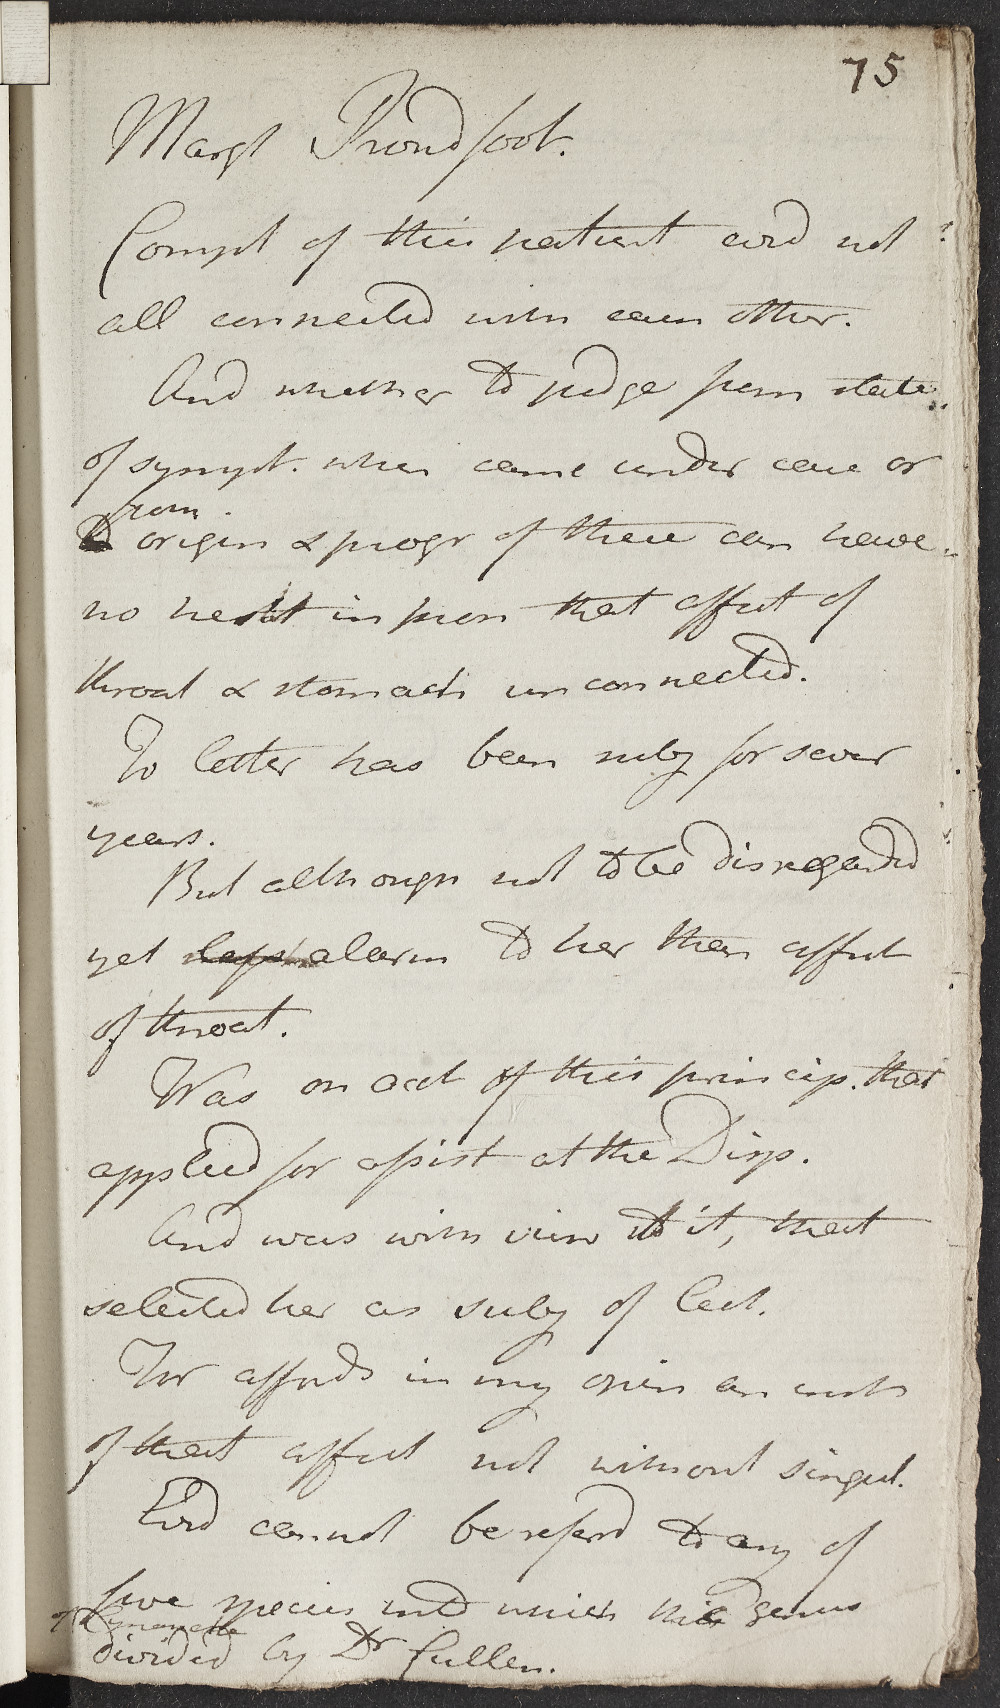 75
Margt Proudfoot.
Compt of this patient evid not
all connected with each other.
And whether to judge from state
of sympt. when came under care or
from
origin & progr of these can have
no hesit in pron that affect of
throat & stomach unconnected.
To latter has been subj for sever
years.
But although not to be disregarded
yet less alarm to her than affect
of throat.
Was on acct of this princip. that
applied for assist at the Disp.
And was with view to it, that
selected her as subj of lect.
For affords in my opin an inst
of that affect not without singul.
Evid cannot be referd to any of
five species into which this genus
of Cynanche
divided by Dr Cullen.